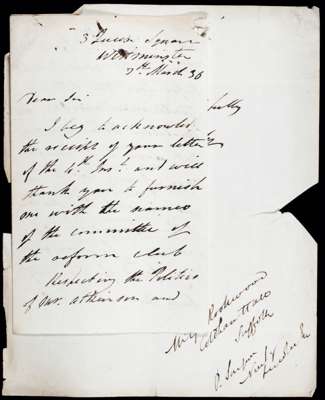 3 Queen Square
Westminster
7th March 36
Dear Sir
I beg to acknowledge
the receipt of your letter
of the 4th Inst. and will
thank you to furnish
me with the names
of the committee of
the reform club
Respecting the Politics
of Mr. Atkinson and
Rookwood
Coldham Hall
Suffolk